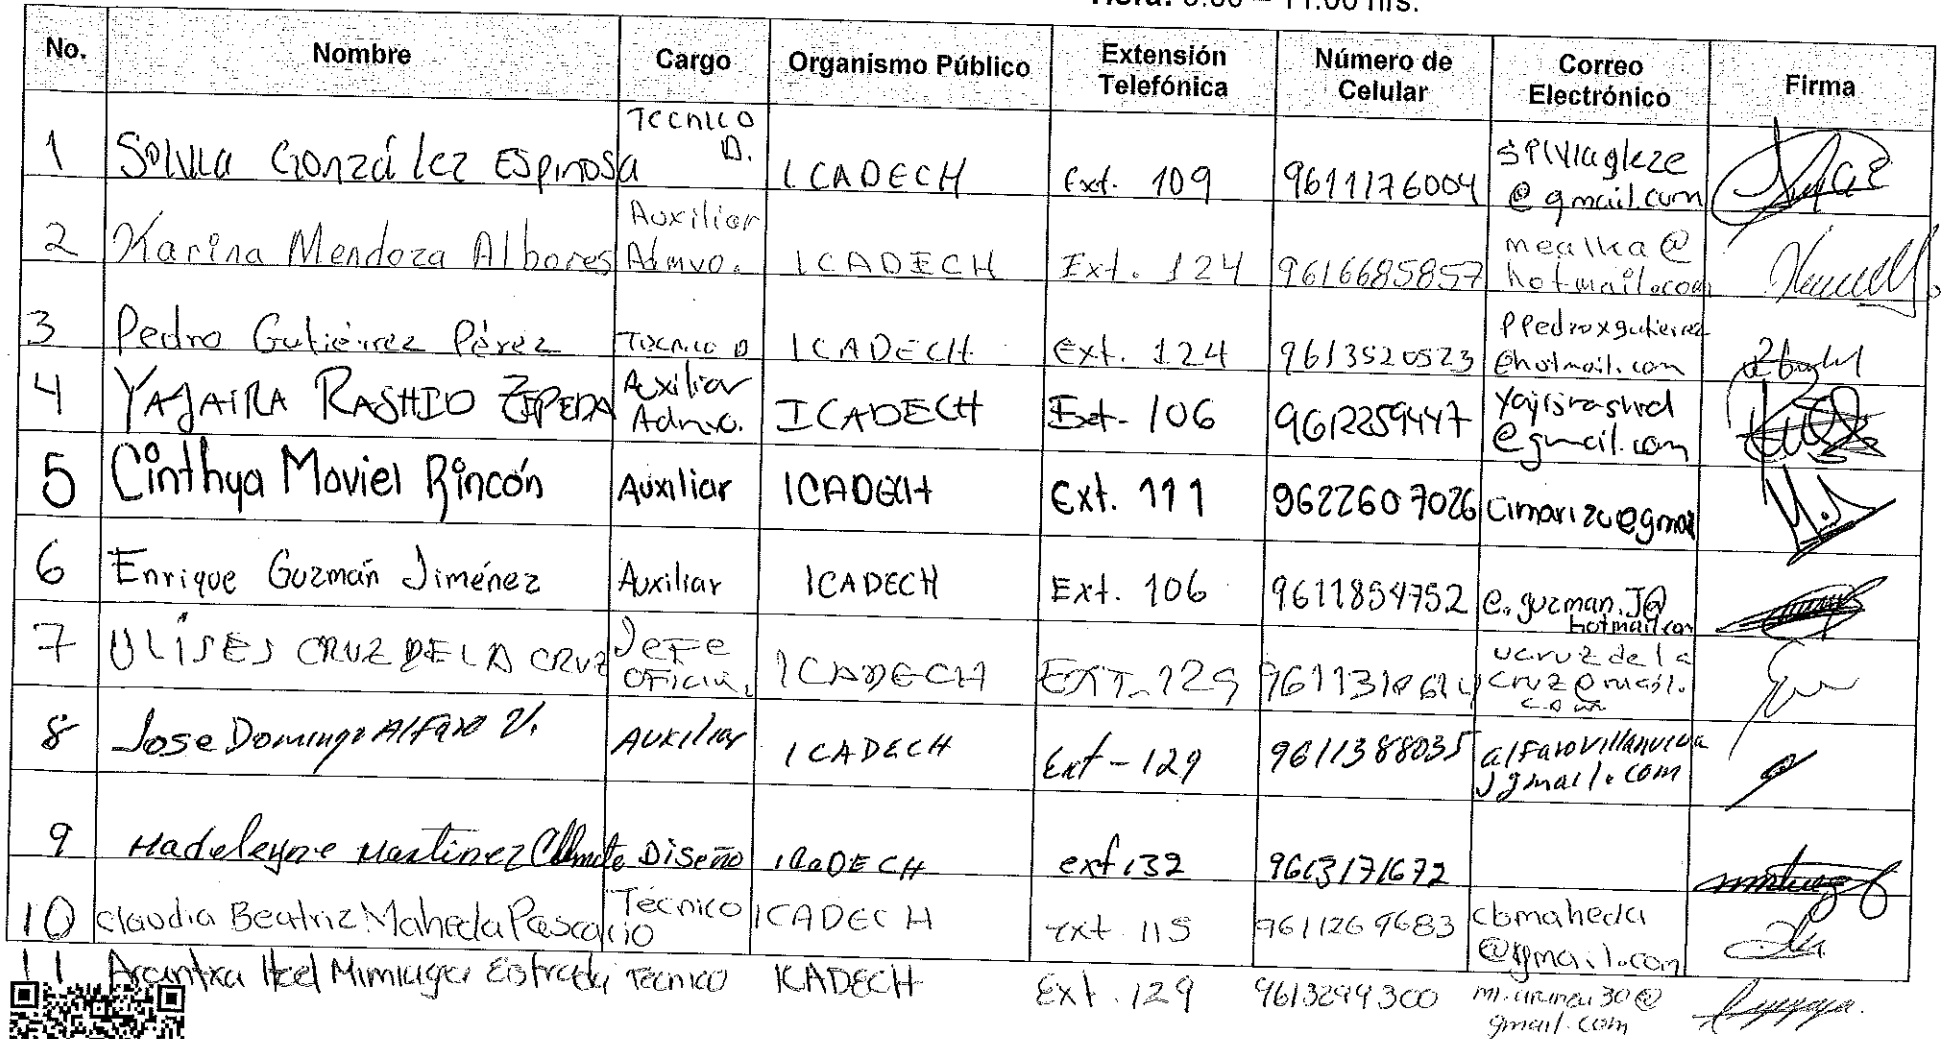 Hora: 11:00 hrs.
No. Nombre Cargo Organismo Público Extensión Telefónica Número de Celular Correo Electrónico Firma
1 Silvia González Espinosa Tecnico D. ICADECH Ext. 109 9611176004 silviagleze @gmail.com
2 Karina Mendoza Albores Auxiliar Admvo. ICADECH Ext. 124 9616685857 mealka@ hotmail.com
3 Pedro Gutiérrez Pérez Técnico D ICADECH Ext. 124 9613520523 @hotmail.com
4 YAJAIRA RASHID ZEPEDA Auxiliar Admvo. ICADECH Ext. 106 9612259447 @gmail.com
5 Cinthya Moviel Rincón Auxiliar ICADECH Ext. 111 9622607026
6 Enrique Guzmán Jiménez Auxiliar ICADECH Ext. 106 9611854752 e.guzman.J@ hotmail.com
7 ULÍSES CRUZ DE LA CRUZ Jefe Oficina. ICADECH EXT. 129 ucruz de la cruz@mail. com
8 Jose Domingo Alfaro V. Auxiliar ICADECH Ext-129 9611388035 alfarovillanueva gmail.com
9 Madeleyne Martinez Diseño ICADECH ext 132 9613171672
10 Claudia Beatriz Maheda Pascacio Técnico ICADECH ext 115 9611269683 cbmaheda @gmail.com
11 Arantxa Mimiaga Estrada Técnico ICADECH Ext. 129 9613299300 gmail.com